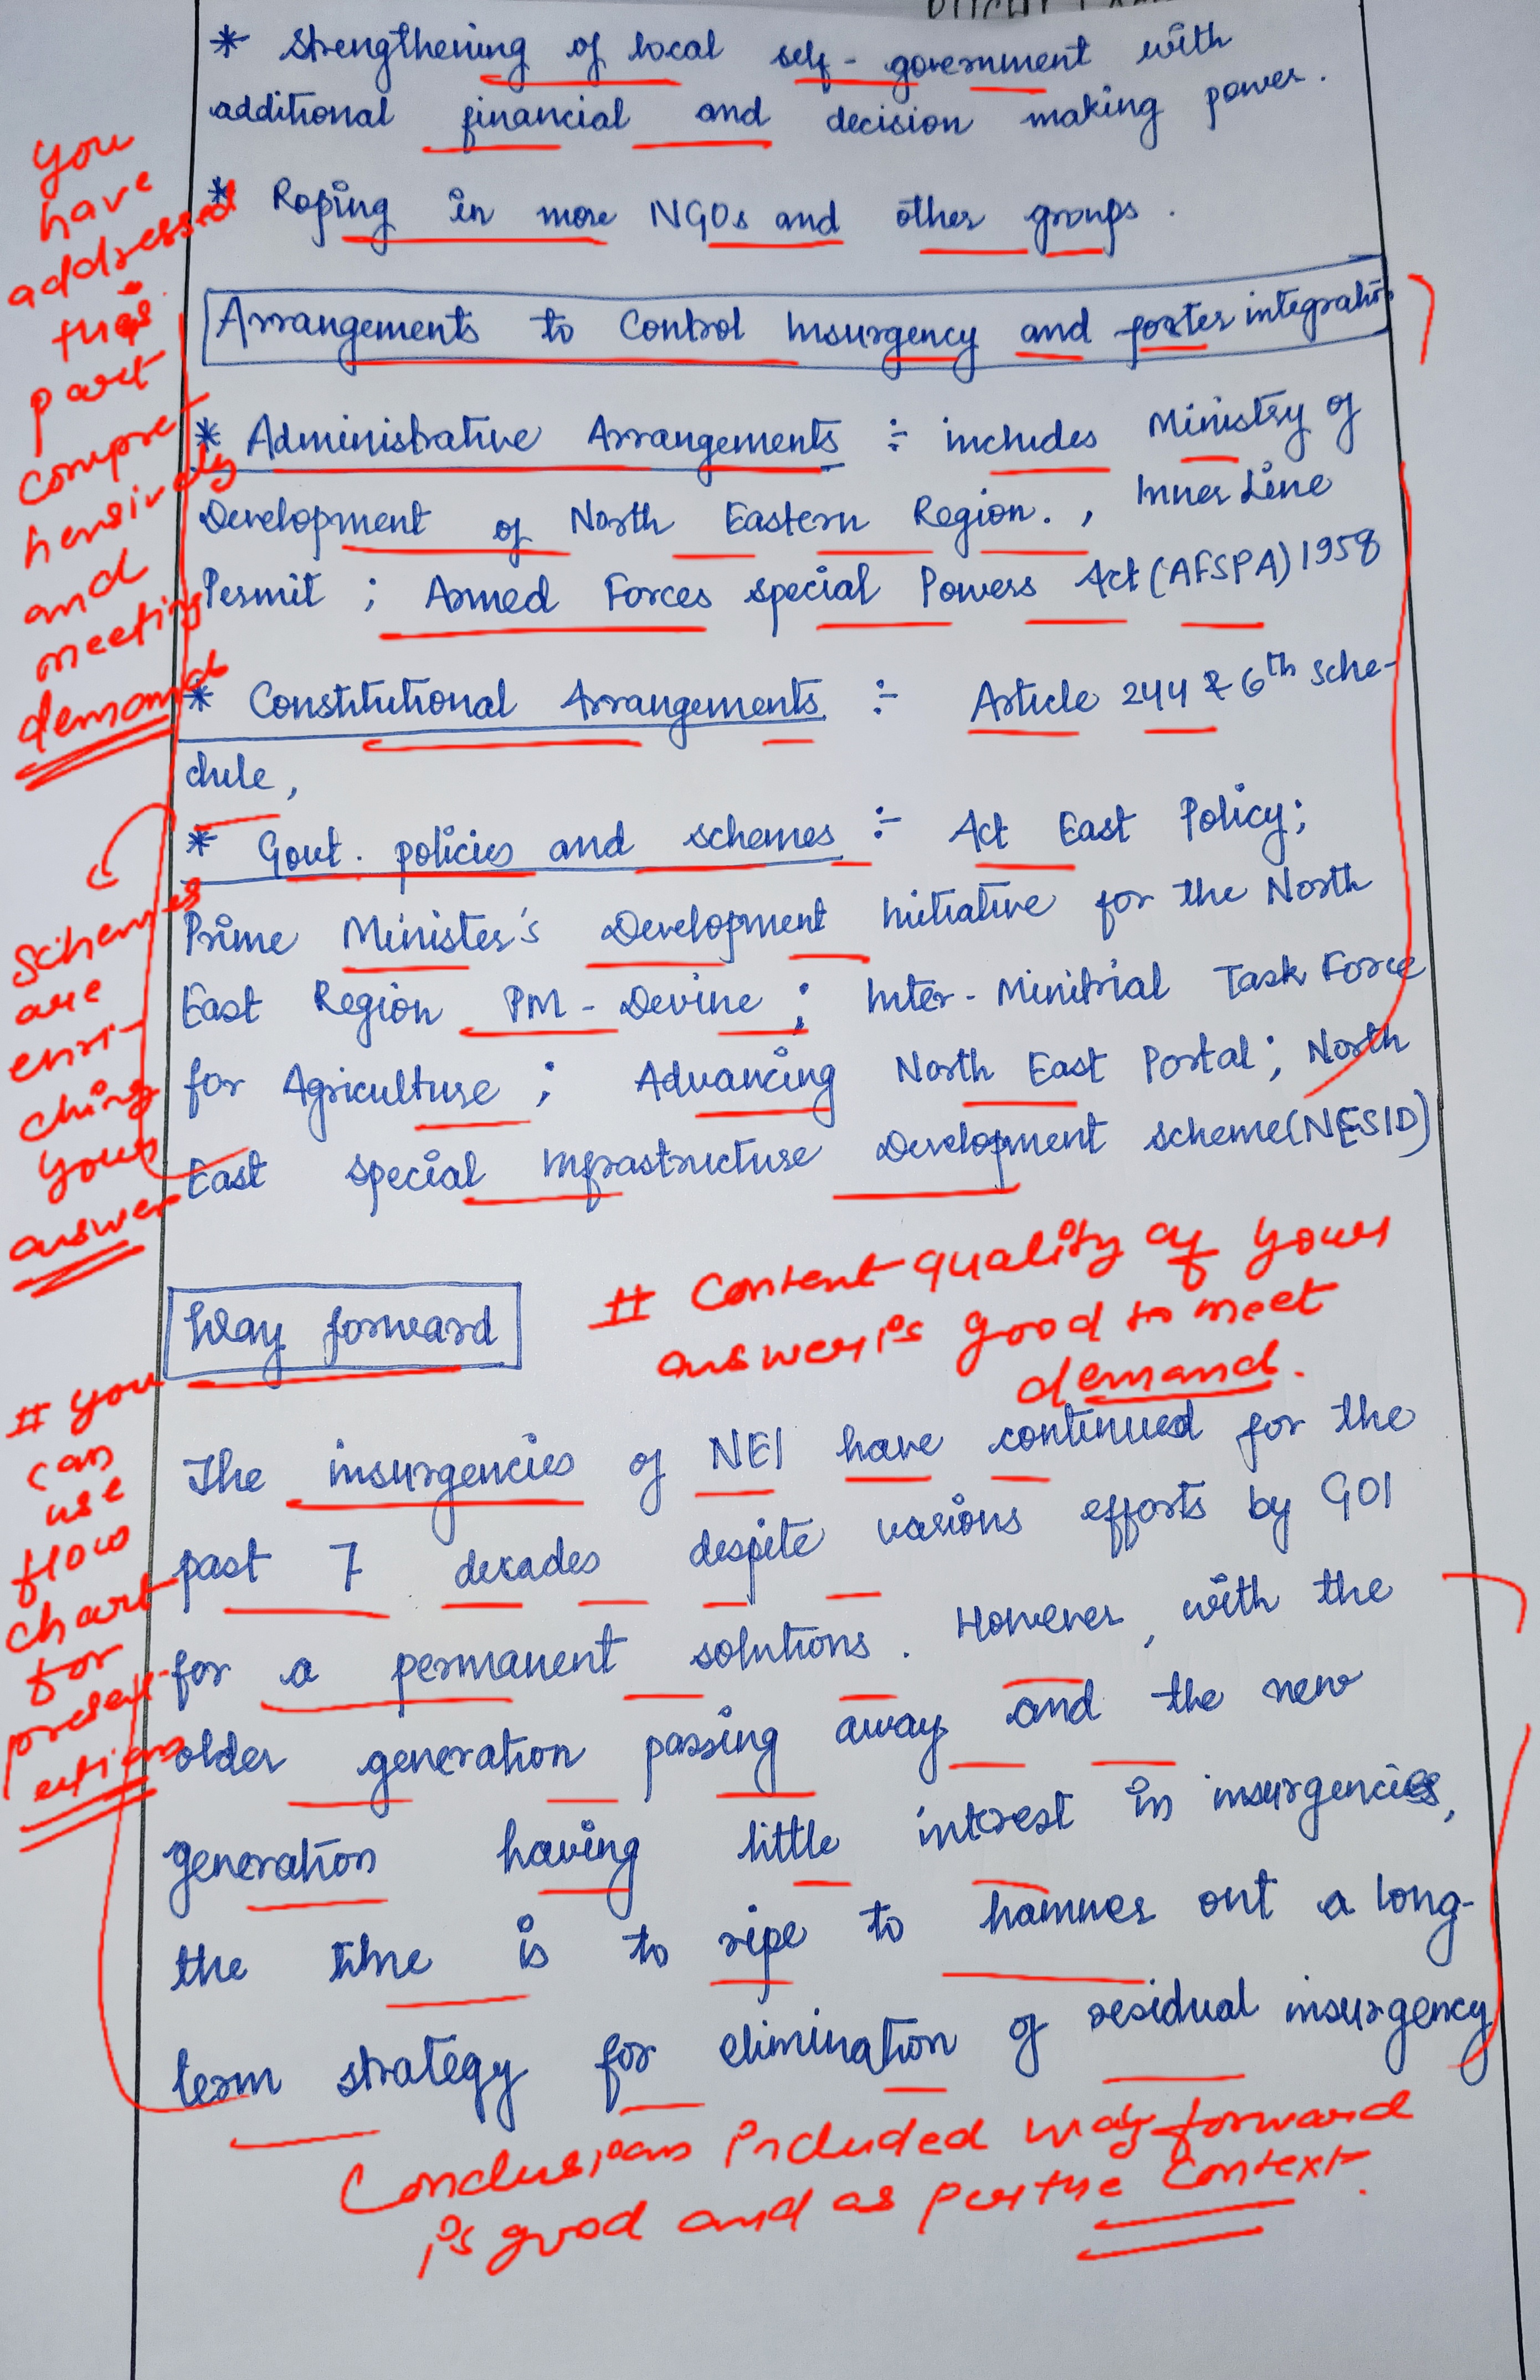 * Strengthening of local self-government with
additional financial and decision making power.
* Roping in more NGOs and other groups.
You have addressed this part compre-
hensively and meeting demand
Arrangements to Control Insurgency and foster integration
* Administrative Arrangements :- includes Ministry of
Development of North Eastern Region., Inner Line
Permit ; Armed Forces special Powers Act (AFSPA) 1958
* Constitutional Arrangements :- Article 244 & 6th Sche-
dule,
* Govt. policies and schemes :- Act East Policy;
Prime Minister's Development Initiative for the North
East Region PM-Devine ; Inter-Minitrial Task Force
for Agriculture ; Advancing North East Portal ; North
East special Infrastructure Development scheme (NESID)
Schemes
are
enri-
ching
your
answer
Way forward
# Content quality of your
answer is good to meet
demand.
# you
can
use
flow
chart
for
The insurgencies of NEI have continued for the
past 7 decades despite various efforts by GOI
for a permanent solutions. However, with the
older generation passing away and the new
generation having little interest in insurgencies,
the time is to ripe to hammer out a long-
term strategy for elimination of residual insurgency
Conclusion included way forward
is good and as per the context.